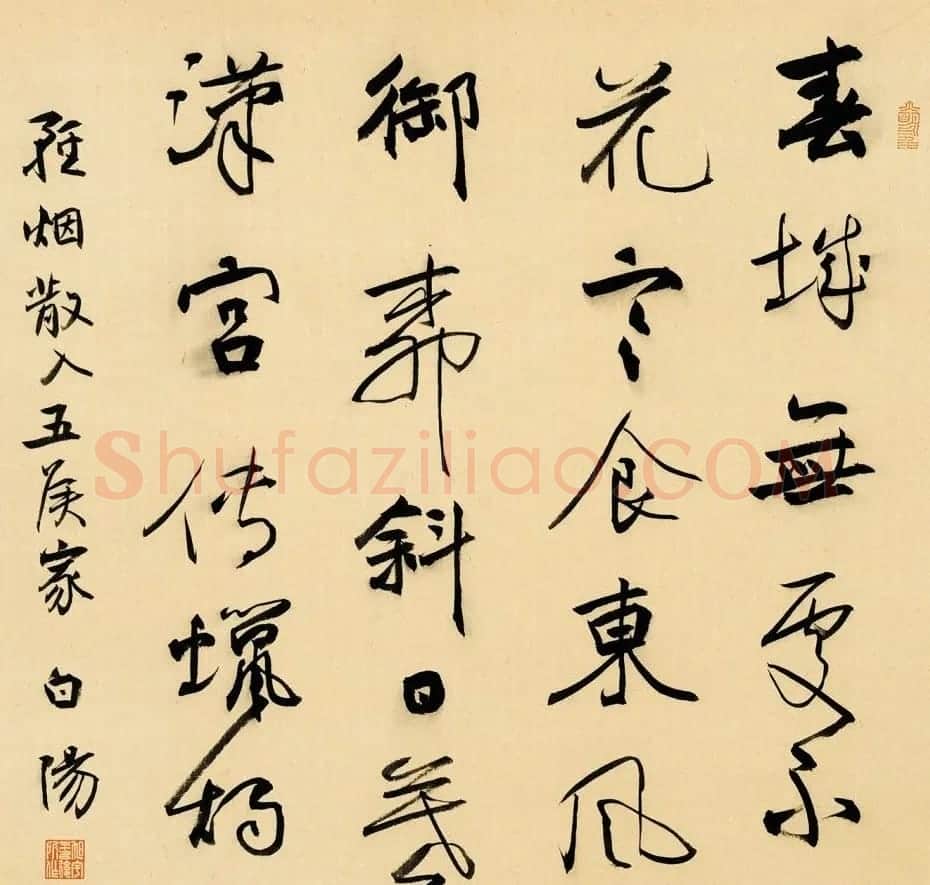 春城無處不
花寒食東風
御柳斜日暮
漢宮傳蠟燭
輕烟散入五侯家 白陽
Shufaziliao.COM